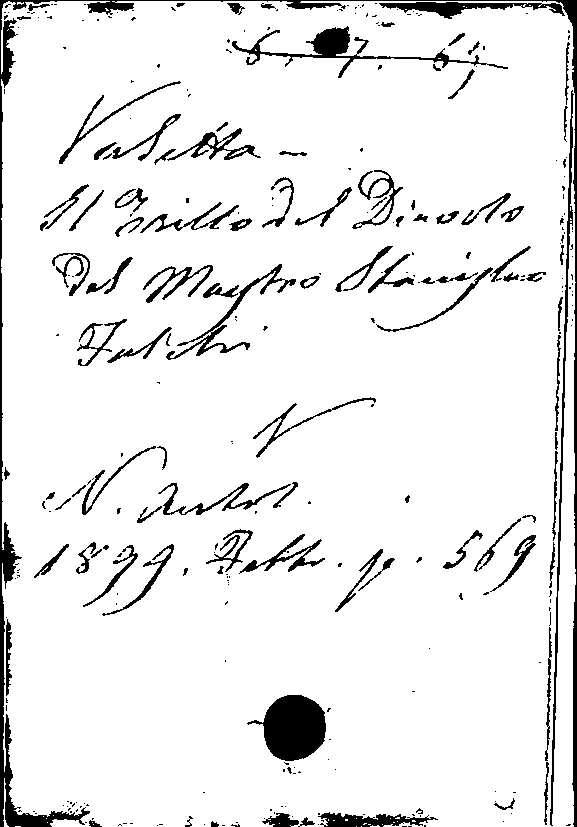 6. 7. 65
Valetta –
Il Trillo del Diavolo
del Maestro Stanislao
Falchi
V
N. Antol.
1899. Febbr. p. 569